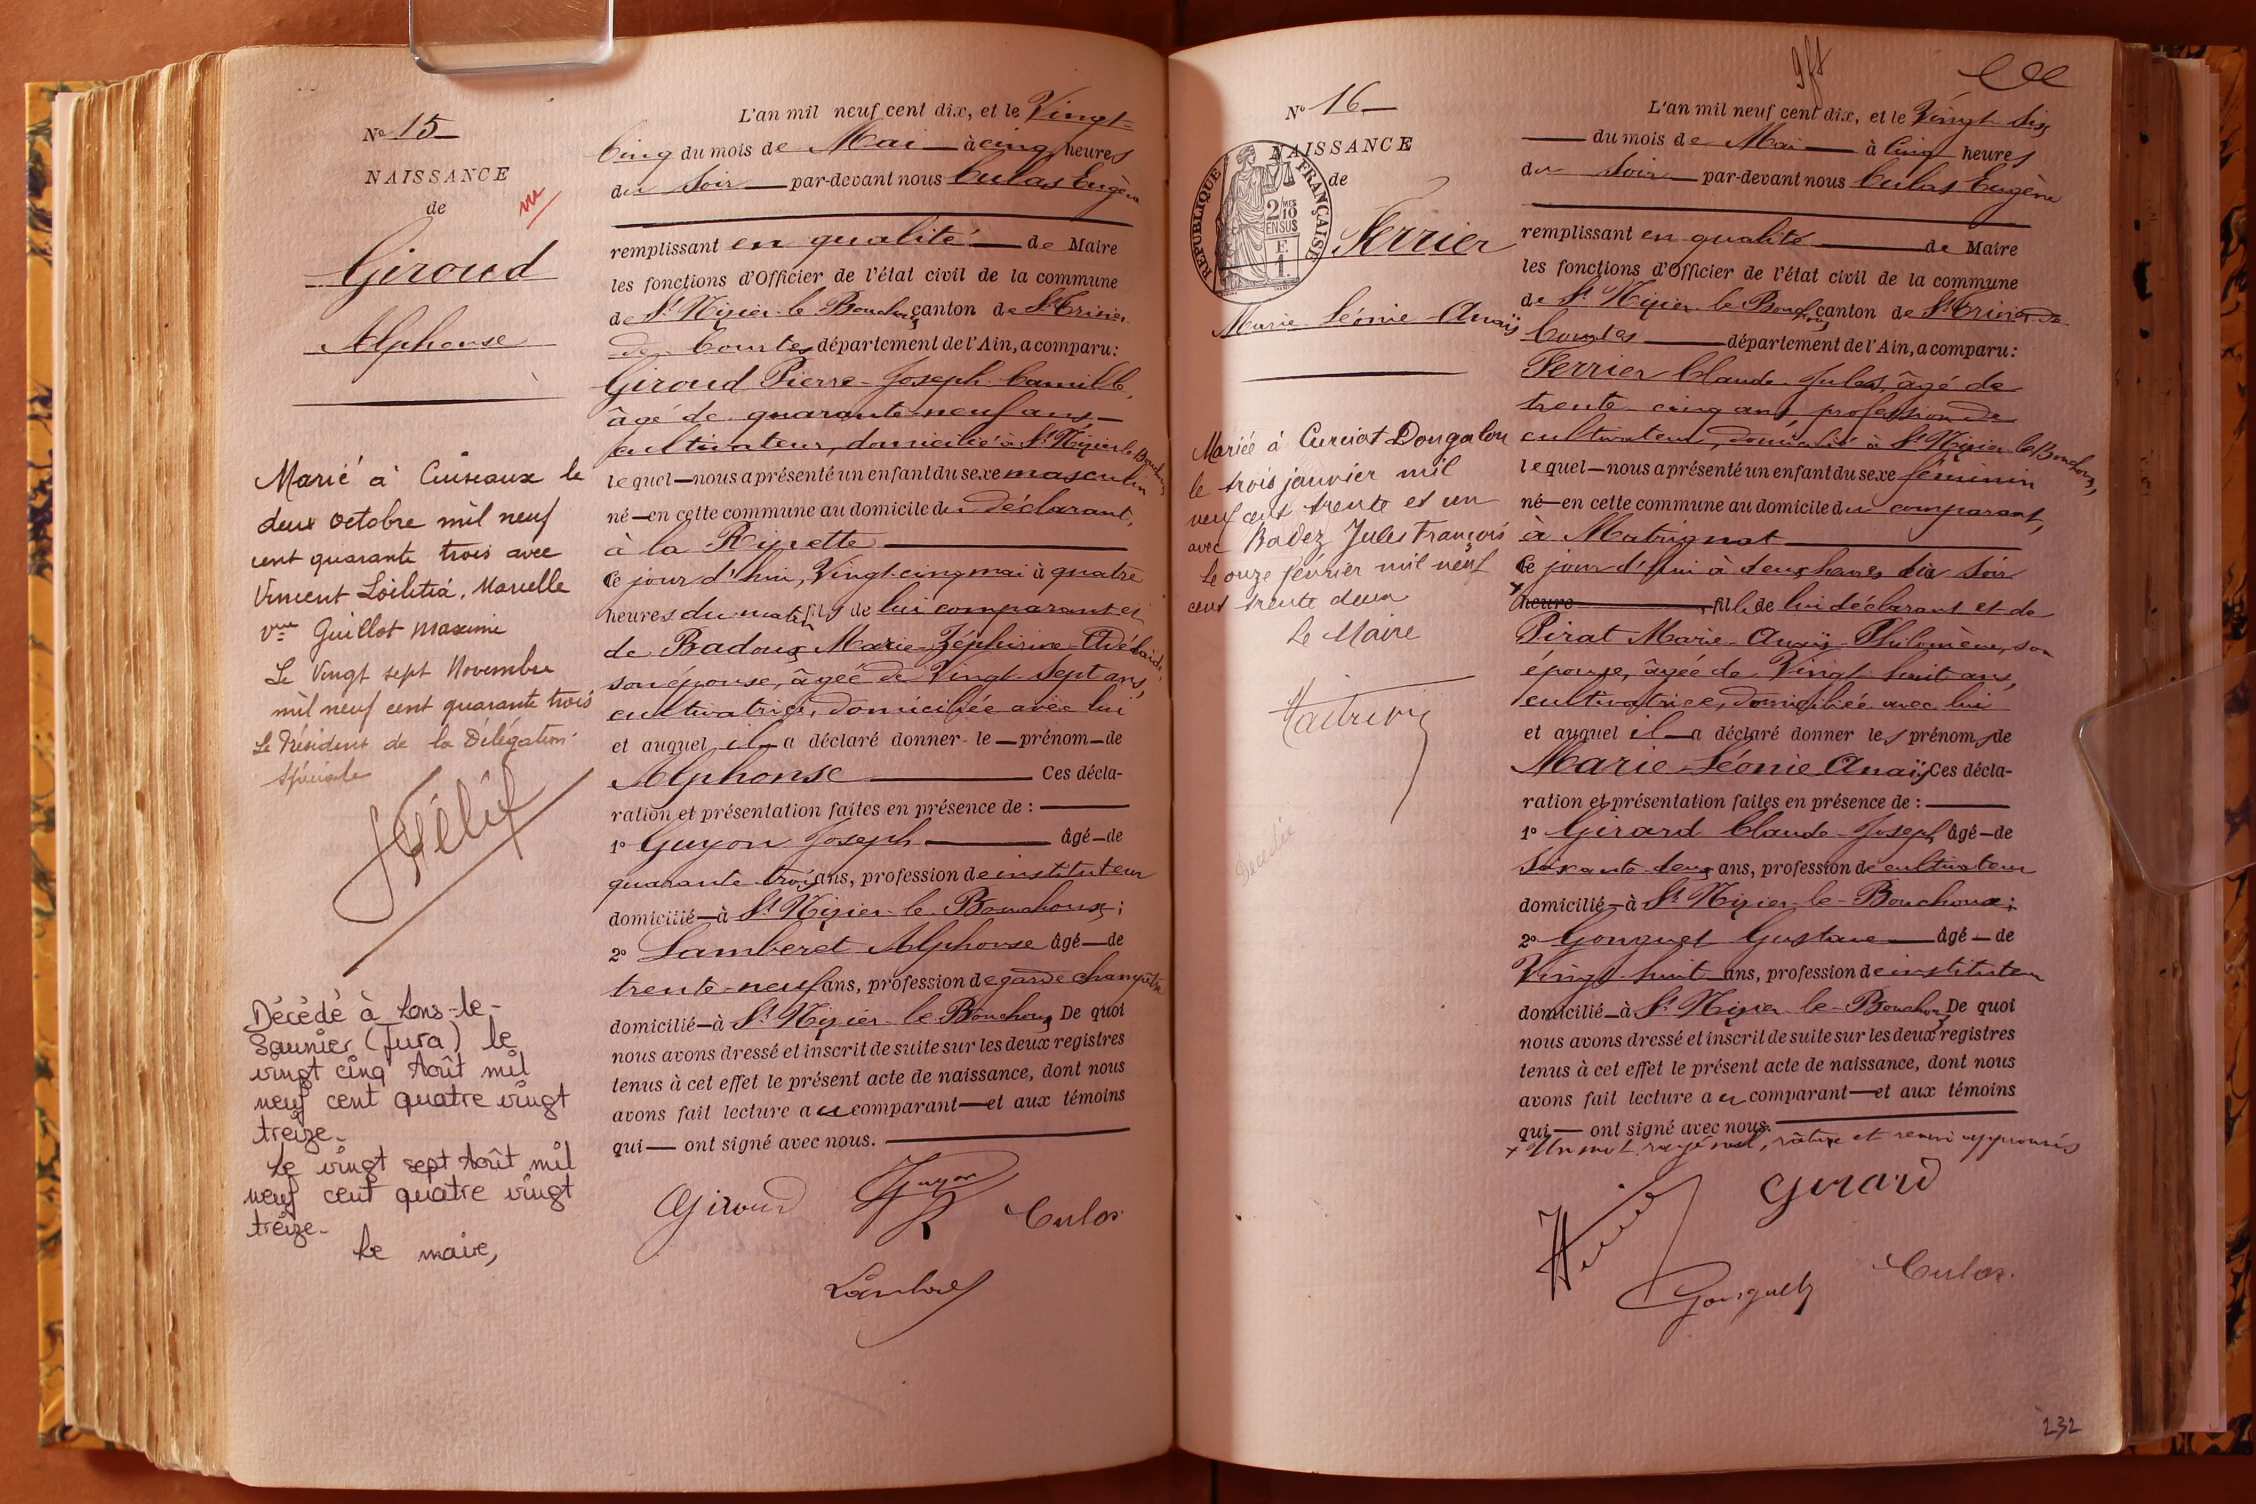 Nº 15
NAISSANCE
de
vu
Giroud
Alphonse
Marié à Cuiseaux le
deux octobre mil neuf
cent quarante trois avec
Vincent Loëlitia, Marcelle
vve Guillot Maxime
Le Vingt sept Novembre
mil neuf cent quarante trois
Le Président de la Délégation
Spéciale
Décédé à Lons-le-
Saunier (Jura) le
vingt cinq Août mil
neuf cent quatre vingt
treize.
Le vingt sept Août mil
neuf cent quatre vingt
treize.
Le maire,
L'an mil neuf cent dix, et le Vingt-
Cinq du mois de Mai à cinq heures
du Soir par-devant nous Culas Eugène
remplissant en qualité de Maire
les fonctions d'Officier de l'état civil de la commune
de St Nizier le Bouchoux canton de St Trivier
de Courtes département de l'Ain, a comparu:
Giroud Pierre-Joseph Camille,
âgé de quarante-neuf ans,
cultivateur, domicilié à St Nizier le Bouchoux
lequel nous a présenté un enfant du sexe masculin
né en cette commune au domicile du déclarant,
à la Ripette
Ce jour d'hui, Vingt-cinq mai à quatre
heures du matin fils de lui comparant et
de Badoux Marie-Zéphirine-Adélaïde
son épouse, âgée de Vingt-Sept ans,
cultivatrice, domiciliée avec lui
et auquel il a déclaré donner le prénom de
Alphonse Ces décla-
ration et présentation faites en présence de :
1º Guyon Joseph âgé de
quarante trois ans, profession de instituteur
domicilié à St Nizier-le-Bouchoux;
2º Lamberet Alphonse âgé de
trente-neuf ans, profession de garde champêtre
domicilié à St Nizier le Bouchoux De quoi
nous avons dressé et inscrit de suite sur les deux registres
tenus à cet effet le présent acte de naissance, dont nous
avons fait lecture au comparant et aux témoins
qui ont signé avec nous.
Giroud Guyon Culas
Lamberet
Nº 16
NAISSANCE
de
REPUBLIQUE FRANÇAISE
2/10
MES
EN SUS
F.
1.
Ferrier
Marie Léonie Anaïs
Mariée à Curciat Dongalon
le trois janvier mil
neuf cent trente et un
avec Badez Jules François
Le onze février mil neuf
cent trente deux
Le Maire
Décédée
L'an mil neuf cent dix, et le Vingt-Six
du mois de Mai à Cinq heures
du Soir par-devant nous Culas Eugène
remplissant en qualité de Maire
les fonctions d'Officier de l'état civil de la commune
de St Nizier le Bouchoux canton de St Trivier de
Courtes département de l'Ain, a comparu:
Ferrier Claude Jules, âgé de
trente-cinq ans, profession de
cultivateur, domicilié à St Nizier le Bouchoux,
lequel nous a présenté un enfant du sexe féminin
né en cette commune au domicile du comparant,
à Matrignat
Ce jour d'hui à deux heures du Soir
x heure fille de lui déclarant et de
Pirat Marie-Anaïs-Philomène, son
épouse, âgée de Vingt-huit ans,
cultivatrice, domiciliée avec lui
et auquel il a déclaré donner les prénoms de
Marie-Léonie Anaïs Ces décla-
ration et présentation faites en présence de :
1º Girard Claude-Joseph âgé de
Soixante-deux ans, profession de cultivateur
domicilié à St Nizier-le-Bouchoux;
2º Gonguet Gustave âgé de
Vingt-huit ans, profession de instituteur
domicilié à St Nizier le-Bouchoux De quoi
nous avons dressé et inscrit de suite sur les deux registres
tenus à cet effet le présent acte de naissance, dont nous
avons fait lecture au comparant et aux témoins
qui ont signé avec nous.
x Un mot rayé nul, rature et renvoi approuvés
Girard
Gonguet Culas
232